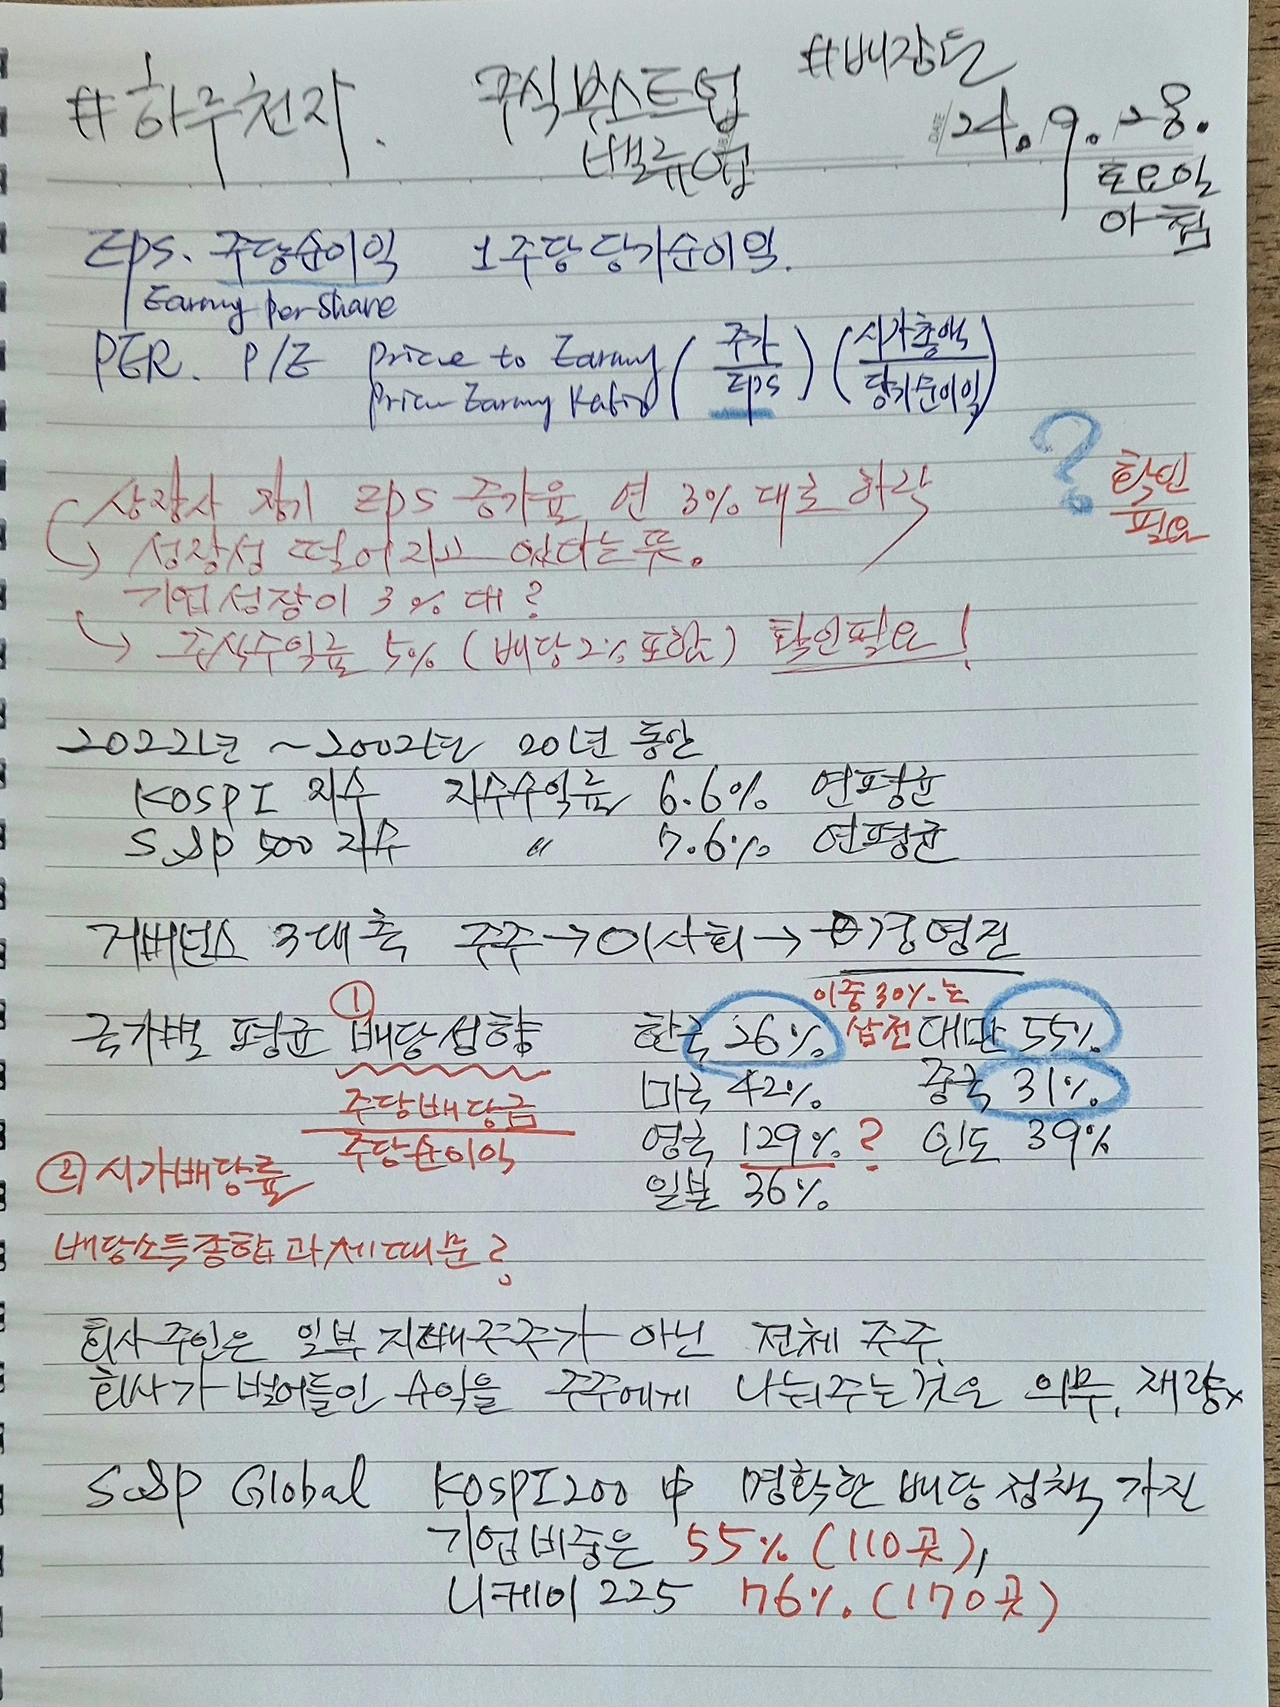 #하루천자. 주식부스트업 #배장군
밸류업 24. 9. 28.
토요일
아침
Eps. 주당순이익 1주당 당기순이익.
Earning per share
PER. P/E price to Earning (주가/Eps) (시가총액/당기순이익)
Price Earning Ratio
? 확인
필요
상장사 장기 Eps 증가율 연 3%대로 하락
→ 성장성 떨어지고 있다는 뜻.
기업성장이 3%대?
→ 주식수익률 5% (배당2% 포함) 확인필요!
2022년 ~ 2002년 20년 동안
KOSPI 지수 지수수익률 6.6% 연평균
S&P 500 지수 〃 7.6% 연평균
거버넌스 3대축 주주→이사회→경영진
① 이중 30%는
국가별 평균 배당성향 한국 26% 삼전 대만 55%
미국 42% 중국 31%
주당배당금
주당순이익 영국 129%? 인도 39%
② 시가배당률 일본 36%
배당소득종합과세때문?
회사주인은 일부 지배주주가 아닌 전체 주주.
회사가 벌어들인 수익을 주주에게 나눠주는것은 의무, 재량x
S&P Global KOSPI200 中 명확한 배당정책 가진
기업비중은 55% (110곳),
니케이 225 76%. (170곳)